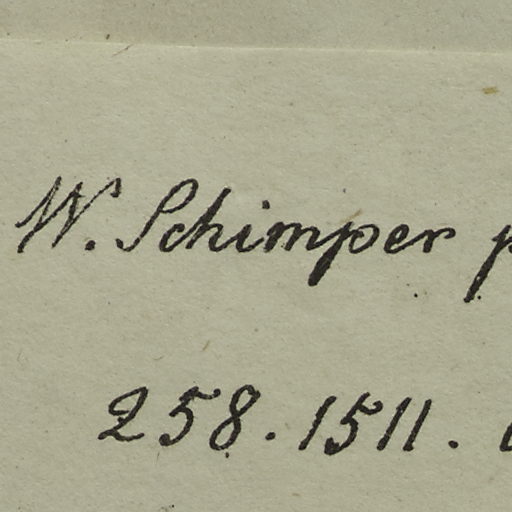 W. Schimper p
258. 1511.